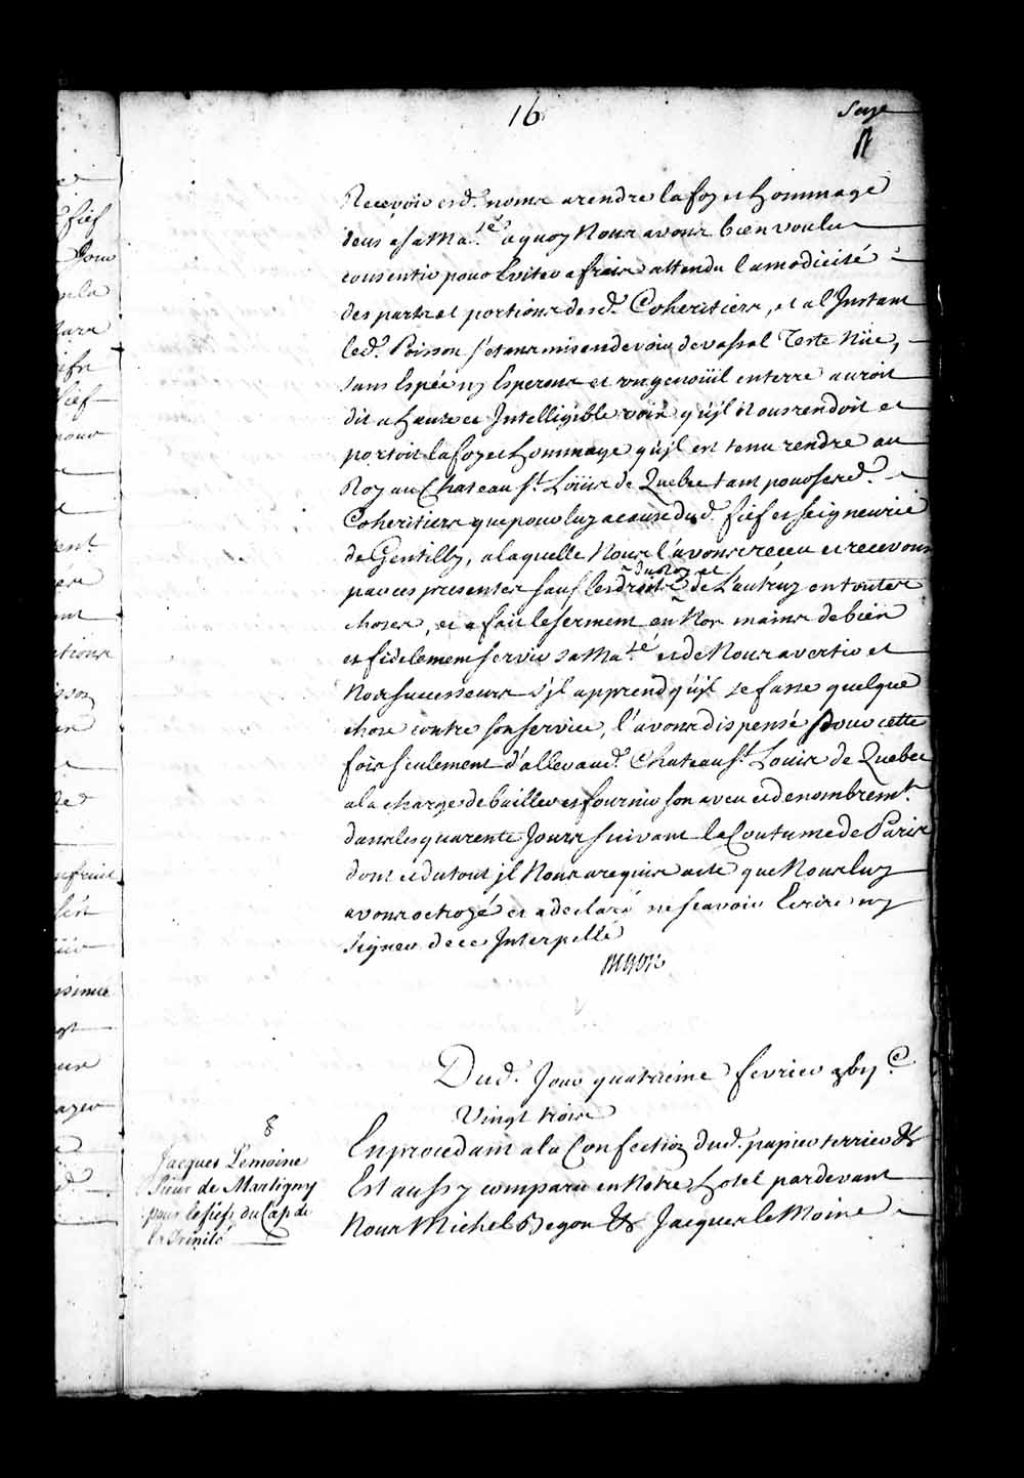 16
Seze
Recevoir esd. noms a rendre la foy et hommage
deus a sa Ma.té a quoy Nous avons bien voulu
consentir pour Eviter a frais attendu la modicité
des parts et portions desd. Coheritiers, et a l'Instant
led. Poisson s'etant mis en devoir de vassal Teste Nüe,
sans Espée ny Esperons et un genoüil en terre auroit
dit a haute et Intelligible voix qu'jl Nous rendoit et
portoit la foy et hommage qu'jl est tenu rendre au
Roy au Chateau St. Loüis de Quebec tant pour sesd.
Coheritiers que pour luy a cause dud. fief et seigneurie
de Gentilly, a laquelle Nous l'avons receu et recevons
par ces presentes sauf les droits du Roy et de L'autruy en toutes
choses, et a fait le serment en Nos mains de bien
et fidelement servir sa Ma.té et de Nous avertir et
Nos successeurs s'jl apprend qu'jl se fasse quelque
chose contre son service, l'avons dispensé pour cette
fois seulement d'aller aud. Chateau St. Louis de Quebec
a la charge de bailler et fournir son aveu et denombremt.
dans les quarente Jours suivant la Coutume de Paris
dont et du tout jl Nous a requis acte que Nous luy
avons octroyé et a declaré ne scavoir Ecrire ny
signer de ce Interpellé
Dud. Jour quatrieme fevrier
Vingt trois
8
Jacques Lemoine
Sieur de Martigny
pour le fief du Cap de
la Trinité
En procedant a la Confection dud. papier terrier &
Est aussy comparu en Notre hotel pardevant
Nous Michel Begon & Jacques le Moine